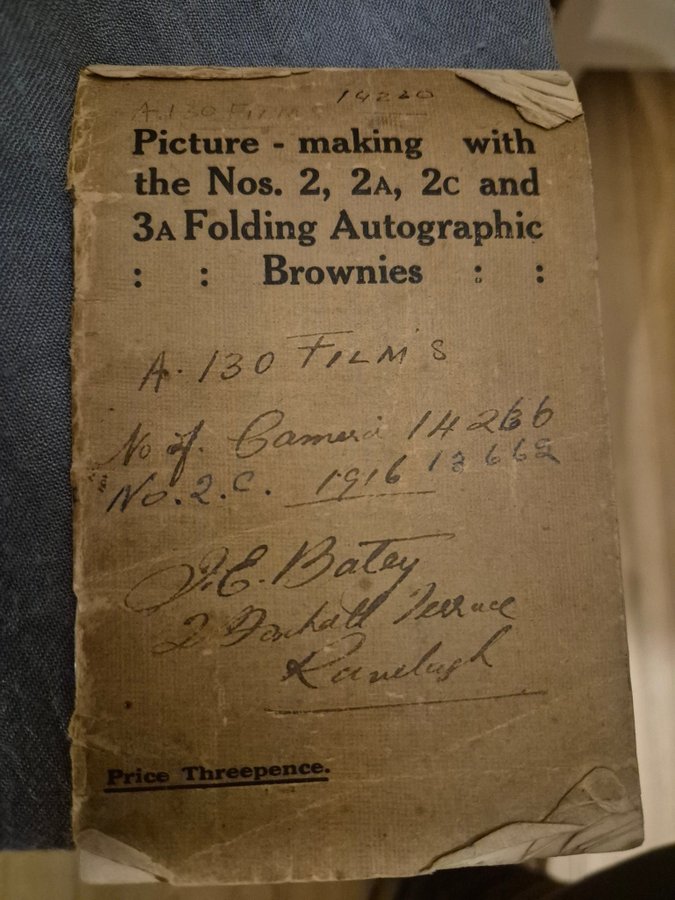 A.130 FILMS 14220
Picture - making with
the Nos. 2, 2A, 2C and
3A Folding Autographic
: : Brownies : :
A. 130 FILM'S
No of. Camera 14266
No. 2. C. 1916 13662
J. E. Batey
2 Terrace
Ranelagh
Price Threepence.